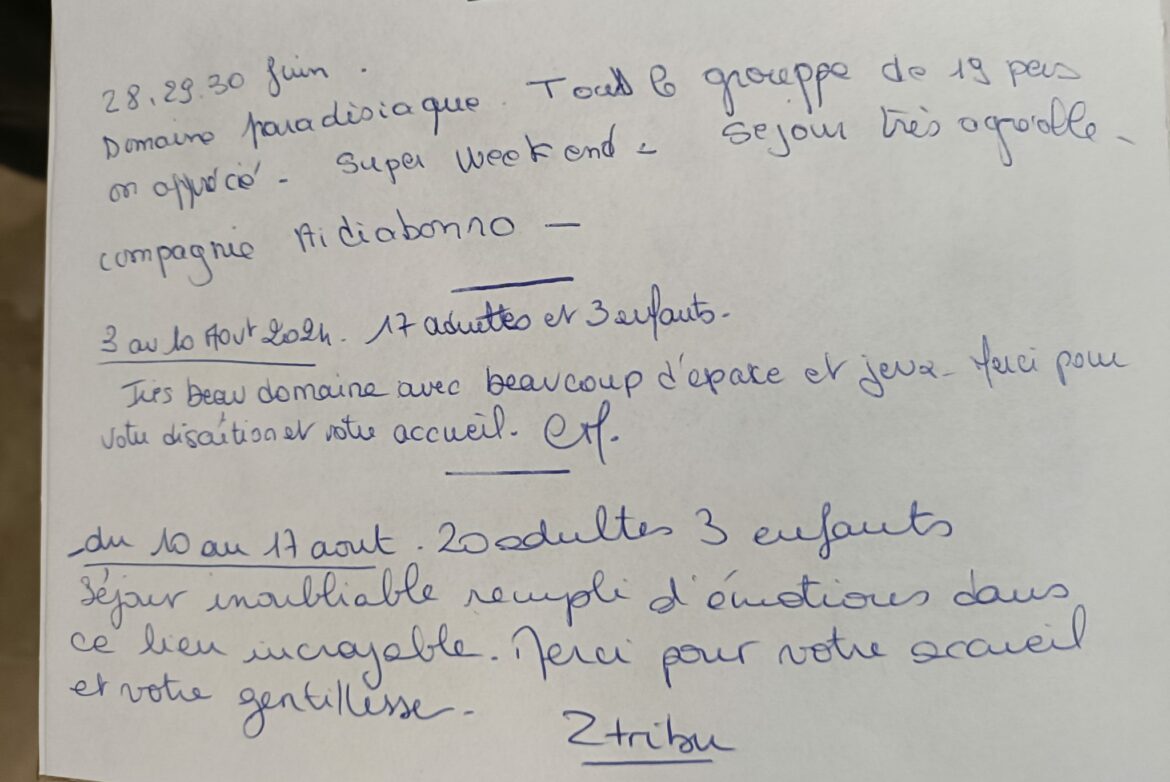 28.29.30 Juin.
Domaine paradisiaque. Tous le grouppe de 19 pers
on apprécié. Super Weekend. Sejour très agréable.
compagnie
3 au 10 Aout 2024. 17 adultes et 3 enfants.
Très beau domaine avec beaucoup d'espace et jeux. Merci pour
votre discrétion et votre accueil.
du 10 au 17 aout. 20 adultes 3 enfants
Séjour inoubliable rempli d'émotions dans
ce lieu incroyable. Merci pour votre accueil
et votre gentillesse.
Ztribu